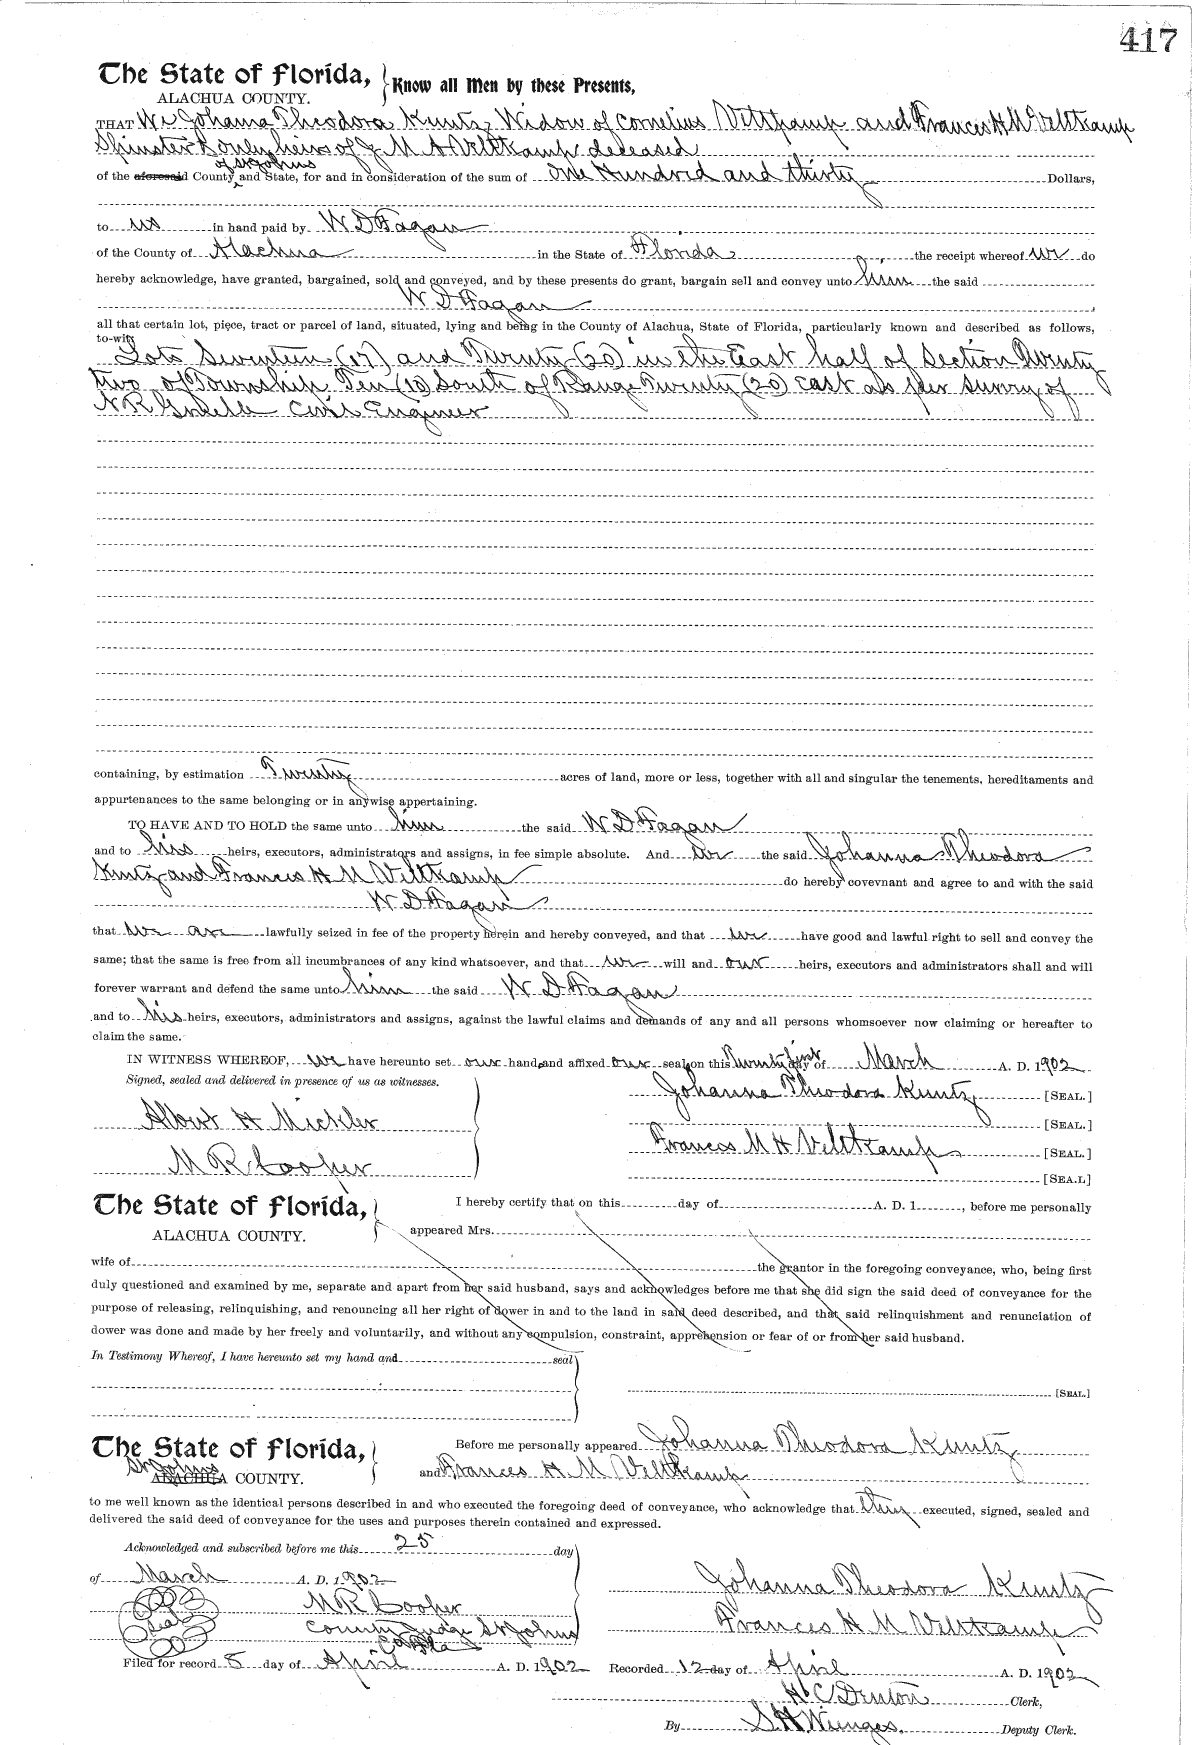 417
The State of Florida, Know all Men by these Presents,
ALACHUA COUNTY.
THAT We Johanna Theodora Kuntz, Widow of Cornelius Veltkamp and Frances H M Veltkamp
Spinster & only heirs of J. M. A Veltkamp deceased
of St Johns
of the aforesaid County and State, for and in consideration of the sum of One Hundred and thirty Dollars,
to us in hand paid by W D Fagan
of the County of Alachua in the State of Florida, the receipt whereof we do
hereby acknowledge, have granted, bargained, sold and conveyed, and by these presents do grant, bargain sell and convey unto him the said
W D Fagan
all that certain lot, piece, tract or parcel of land, situated, lying and being in the County of Alachua, State of Florida, particularly known and described as follows,
to-wit:
Lots Seventeen (17) and Twenty (20) in the East half of Section Twenty
two of Township Ten (10) South of Range Twenty (20) east as per survey of
N R Civil Engineer
containing, by estimation Twenty acres of land, more or less, together with all and singular the tenements, hereditaments and
appurtenances to the same belonging or in anywise appertaining.
TO HAVE AND TO HOLD the same unto him the said W D Fagan
and to his heirs, executors, administrators and assigns, in fee simple absolute. And we the said Johanna Theodora
Kuntz and Frances H M Veltkamp do hereby covevnant and agree to and with the said
W D Fagan
that we are lawfully seized in fee of the property herein and hereby conveyed, and that we have good and lawful right to sell and convey the
same; that the same is free from all incumbrances of any kind whatsoever, and that we will and our heirs, executors and administrators shall and will
forever warrant and defend the same unto him the said W D Fagan
and to his heirs, executors, administrators and assigns, against the lawful claims and demands of any and all persons whomsoever now claiming or hereafter to
claim the same.
IN WITNESS WHEREOF, we have hereunto set our hands and affixed our seals on this Twenty first day of March A. D. 1902
Signed, sealed and delivered in presence of us as witnesses.
Johanna Theodora Kuntz [SEAL.]
Albert H Mickler [SEAL.]
Frances M H Veltkamp [SEAL.]
M R Cooper [SEA.L]
The State of Florida, I hereby certify that on this day of A. D. 1 , before me personally
ALACHUA COUNTY. appeared Mrs.
wife of the grantor in the foregoing conveyance, who, being first
duly questioned and examined by me, separate and apart from her said husband, says and acknowledges before me that she did sign the said deed of conveyance for the
purpose of releasing, relinquishing, and renouncing all her right of dower in and to the land in said deed described, and that said relinquishment and renunciation of
dower was done and made by her freely and voluntarily, and without any compulsion, constraint, apprehension or fear of or from her said husband.
In Testimony Whereof, I have hereunto set my hand and seal
[SEAL.]
The State of Florida, Before me personally appeared Johanna Theodora Kuntz
St Johns
ALACHUA COUNTY. and Frances H M Veltkamp
to me well known as the identical persons described in and who executed the foregoing deed of conveyance, who acknowledge that they executed, signed, sealed and
delivered the said deed of conveyance for the uses and purposes therein contained and expressed.
Acknowledged and subscribed before me this 25 day
of March A. D. 1902 Johanna Theodora Kuntz
seal M R Cooper
County Judge St Johns Frances H M Veltkamp
Co Fla
Filed for record 8 day of April A. D. 1902 Recorded 12 day of April A. D. 1902
H C Denton Clerk,
By S H Wienges. Deputy Clerk.